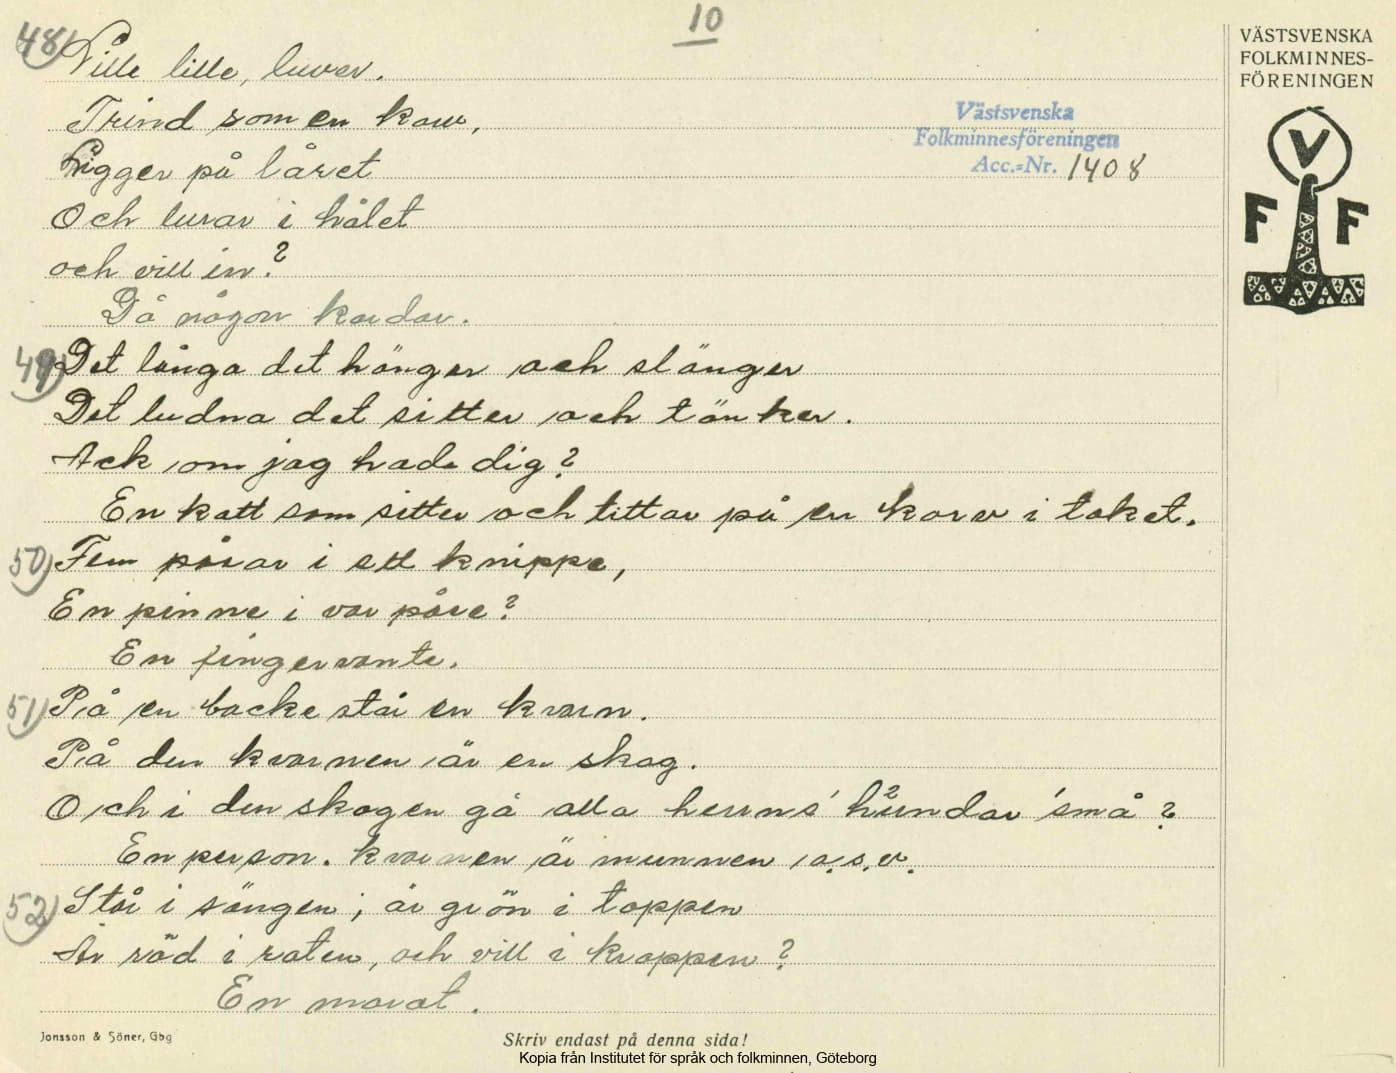 10
VÄSTSVENSKA
FOLKMINNES-
FÖRENINGEN
V
F F
Västsvenska
Folkminnesföreningen
Acc.=Nr. 1408
48) Ville lille, luver.
Trind som en kaw,
Ligger på låret
Och lurar i hålet
och vill in?
Då någon kardar.
49) Det långa det hänger och slänger
Det ludna det sitter och tänker.
Ack om jag hade dig?
En katt som sitter och tittar på en korv i taket.
50) Fem påsar i ett knippe,
En pinne i var påse?
En fingervante.
51) På en backe står en kvarn.
På den kvarnen är en skog.
Och i den skogen gå alla herrns' hundar små?
En person. kvarnen är munnen o.s.v.
52) Står i sängen, är grön i toppen
Är röd i roten, och vill i kroppen?
En morot.
Jonsson & Söner, Gbg
Skriv endast på denna sida!
Kopia från Institutet för språk och folkminnen, Göteborg